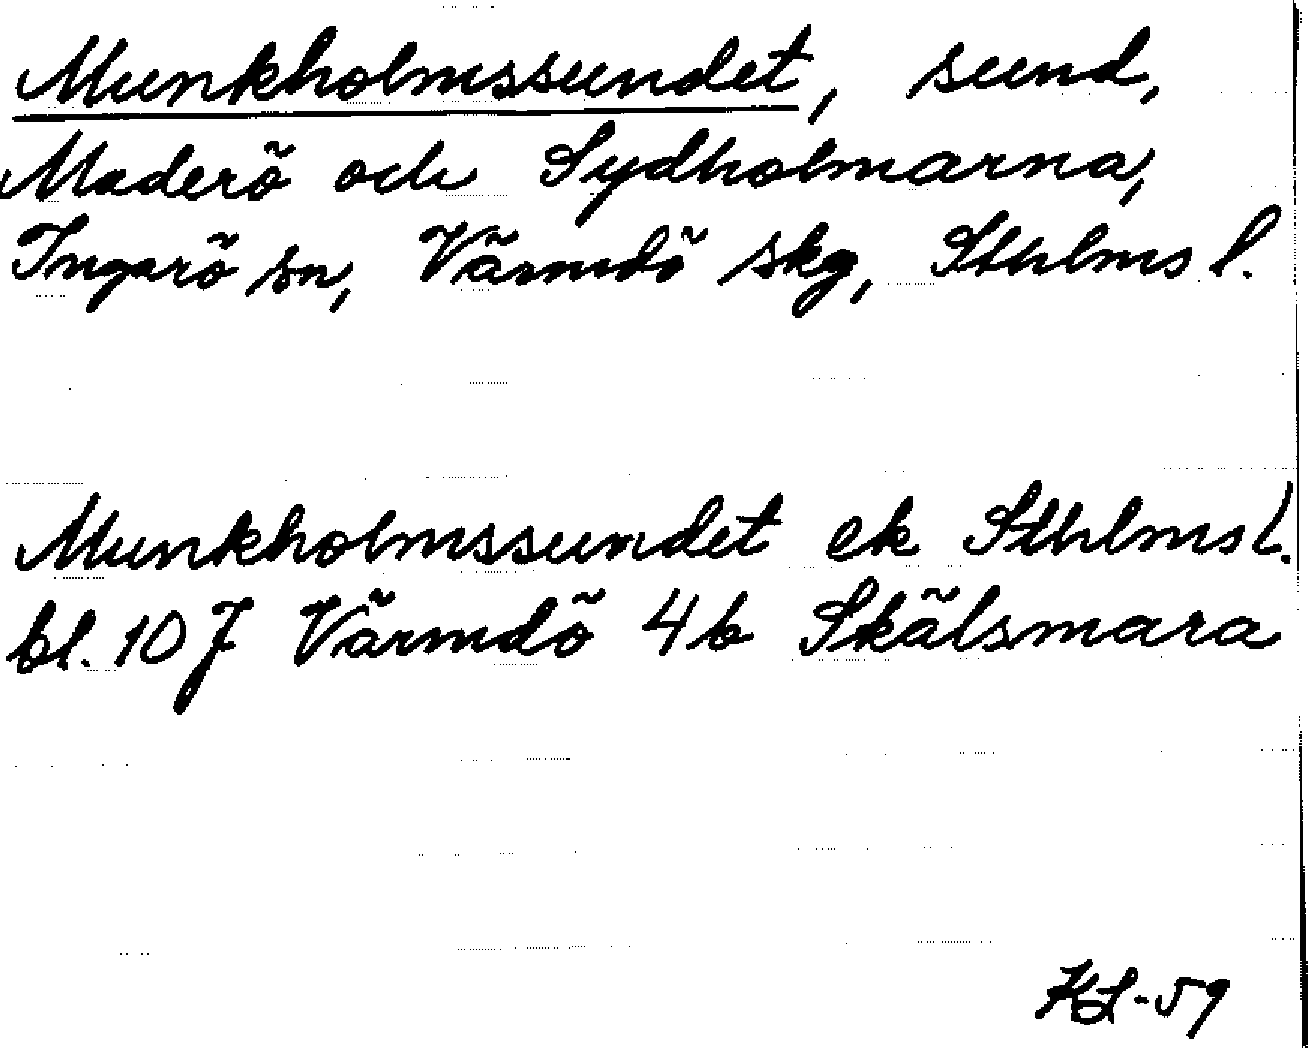 Munkholmssundet, sund,
Maderö och Sydholmarna,
Ingarö sn, Värmdö skg, Sthlms l.
Munkholmssundet ek Sthlms l.
bl. 107 Värmdö 4b Skälsmara
KL-59